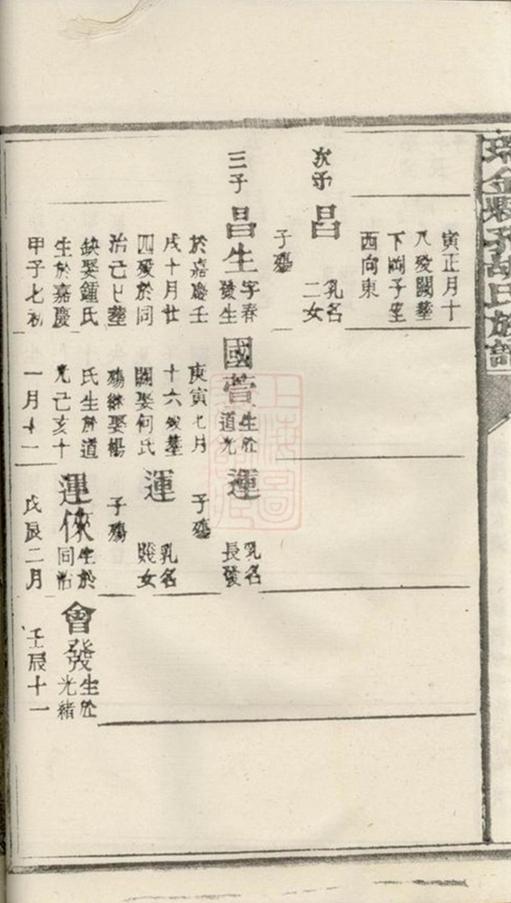 胡氏族譜
寅正月十
八歿闕葬
下岡子
西向東
次子
昌
乳名
二女
子殤
三子
昌生
字春
發生
於嘉慶壬
戌十月廿
四歿於同
治己巳葬
缺娶鍾氏
生於嘉慶
甲子七初
國萱
生於
道光
庚寅七月
十六歿葬
闕娶何氏
殤繼娶楊
氏生於道
光己亥十
一月十二
運
乳名
長發
子殤
運
乳名
賤女
子殤
運俠
生於
同治
戊辰二月
會發
生於
光緒
壬辰十一